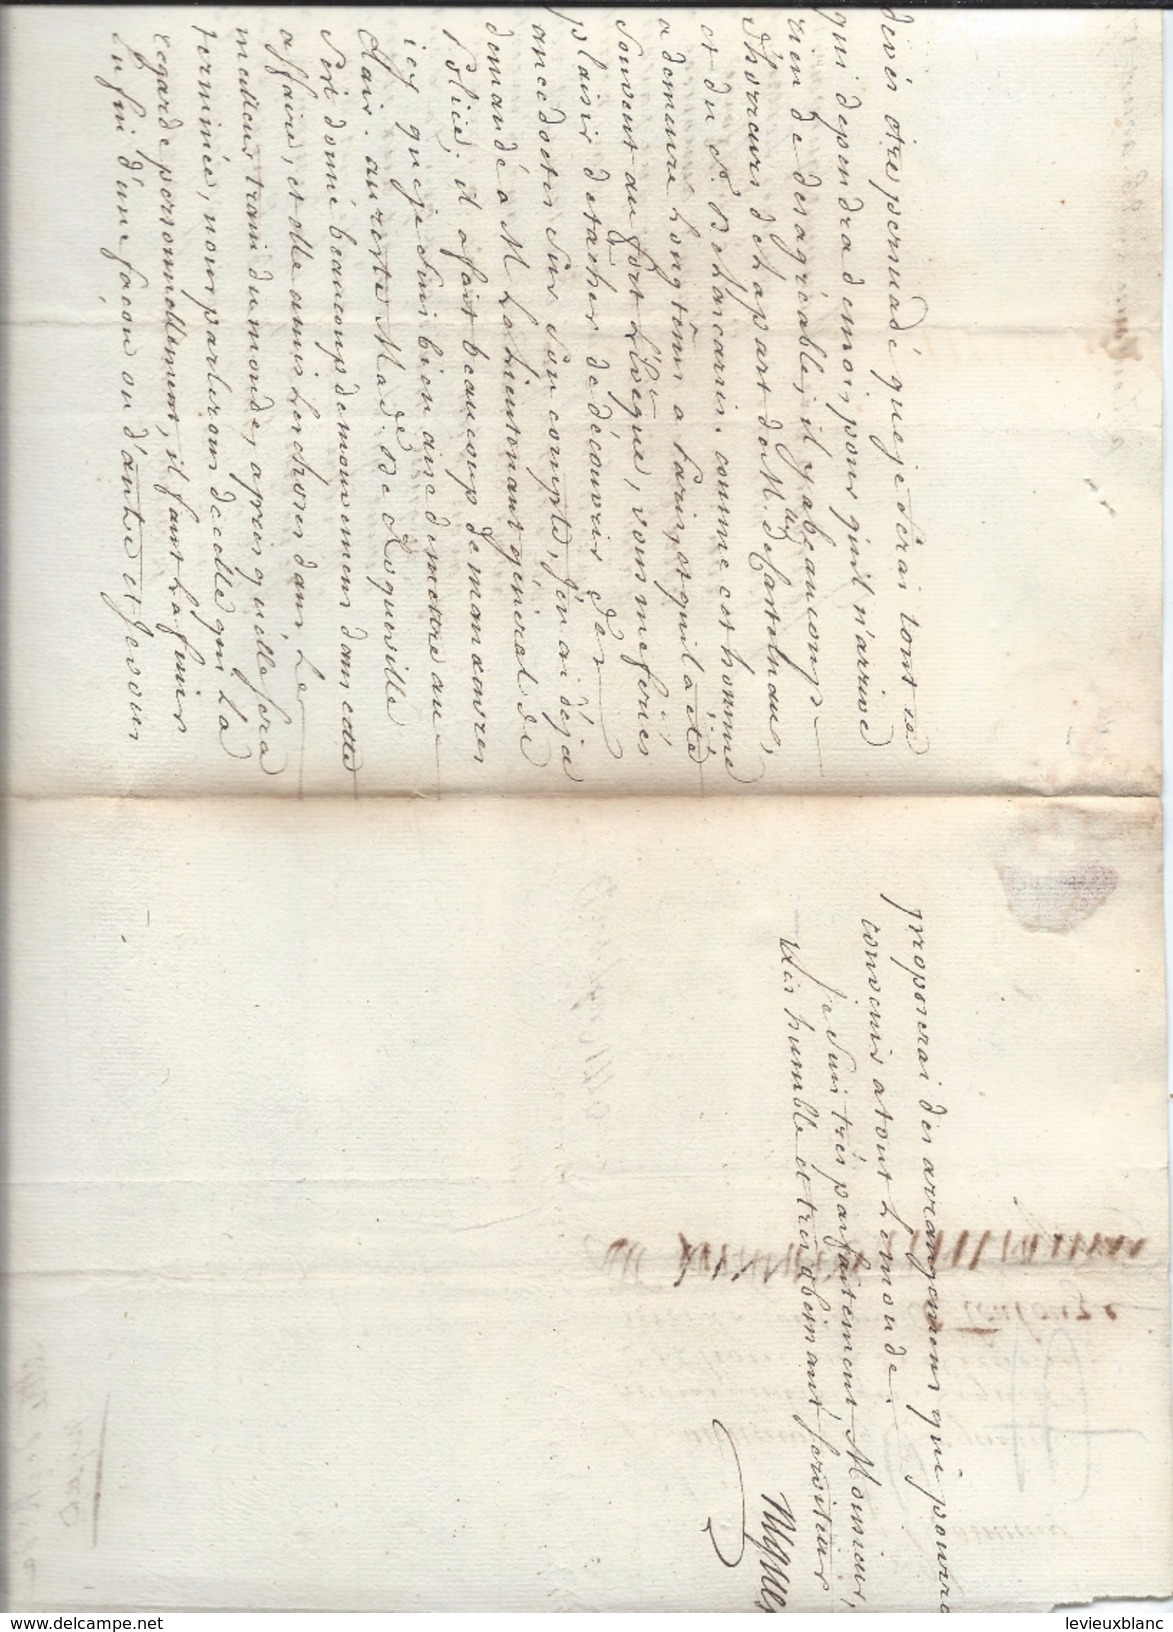 devés etre persuadé que je serai tout ce
qui dependra de moi, pour qu'il n'arrive
rien de desagréable, il y a beaucoup
d'horreurs de la part de M. de Castelnau,
et du S. Delascaris. comme cet homme
a demeuré longtêms a Paris, et qu'il a été
souvent au fort L'Evêque, vous me feriés
plaisir de tacher de découvrir des
anecdotes sur son compte, j'en ai déja
demandé a M. Le Lieutenant général de
Police. il a fait beaucoup de manœuvres
ici que je suis bien aise de mettre au
clair. au reste Made. De Loqueville
s'est donné beaucoup de mouvemens dans cette
affaire, et elle a mis les choses dans le
meilleur train du monde, apres qu'elle sera
terminée, nous parlerons de celle qui la
regarde personnellement, il faut la finir
enfin d'une façon ou d'autre et je vous
proposerai des arrangemens qui pourro
convenir a tout le monde.
je suis très parfaitement, Monsieur,
très humble et très obeissant serviteur
Toulouze
levieuxblanc